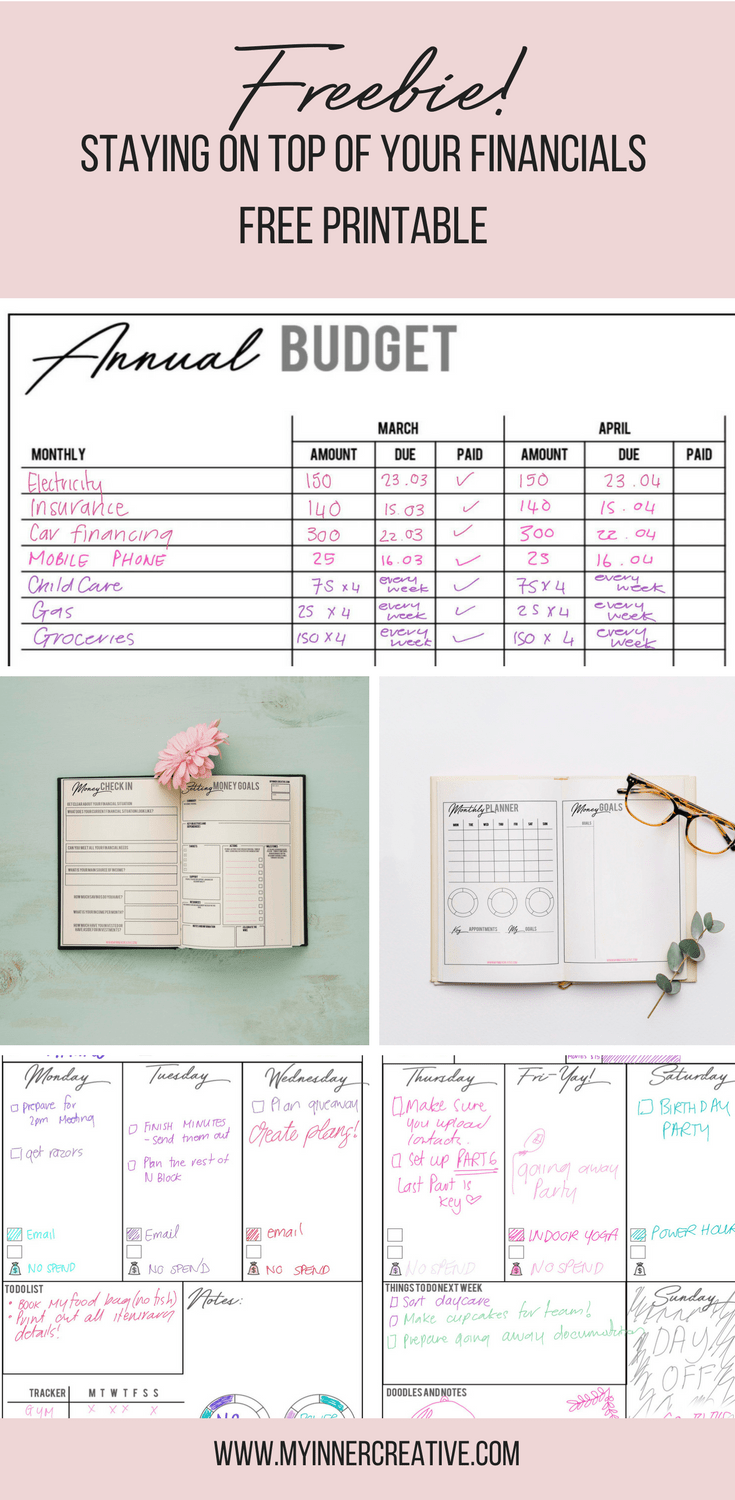 Freebie!
STAYING ON TOP OF YOUR FINANCIALS
FREE PRINTABLE
Annual BUDGET
MARCH APRIL
MONTHLY AMOUNT DUE PAID AMOUNT DUE PAID
Electricity 150 23.03 ✓ 150 23.04
Insurance 140 15.03 ✓ 140 15.04
Car financing 300 22.03 ✓ 300 22.04
MOBILE PHONE 25 16.03 ✓ 25 16.04
Child Care 75 x 4 every week ✓ 75 x 4 every week
Gas 25 x 4 every week ✓ 25 x 4 every week
Groceries 150 x 4 every week ✓ 150 x 4 every week
Money CHECK IN
Setting MONEY GOALS
GET CLEAR ABOUT YOUR FINANCIAL SITUATION
WHAT DOES YOUR CURRENT FINANCIAL SITUATION LOOK LIKE?
CAN YOU MEET ALL YOUR FINANCIAL NEEDS
WHAT IS YOUR MAIN SOURCE OF INCOME?
Monthly PLANNER
MON TUE WED THU FRI SAT SUN
Key APPOINTMENTS My GOALS
Money GOALS
GOALS
Monday
prepare for
2pm Meeting
get razors
Email
NO SPEND
Tuesday
FINISH MINUTES
- send them out
Plan the rest of
N Block
Email
NO SPEND
Wednesday
Plan giveaway
create plans!
email
NO SPEND
Thursday
Make sure
you upload
contacts.
Set up PART 6
Last Part is
key
NO SPEND
Fri-Yay!
going away
Party
INDOOR YOGA
NO SPEND
Saturday
BIRTHDAY
PARTY
POWER HOUR
TO DO LIST
• BOOK My food bag (no fish)
• Print out all itinerary
details!
Notes:
THINGS TO DO NEXT WEEK
Sort daycare
Make cupcakes for team!
Prepare going away documentation
Sunday
DAY
OFF
TRACKER M T W T F S S
GYM X X X X
DOODLES AND NOTES
WWW.MYINNERCREATIVE.COM